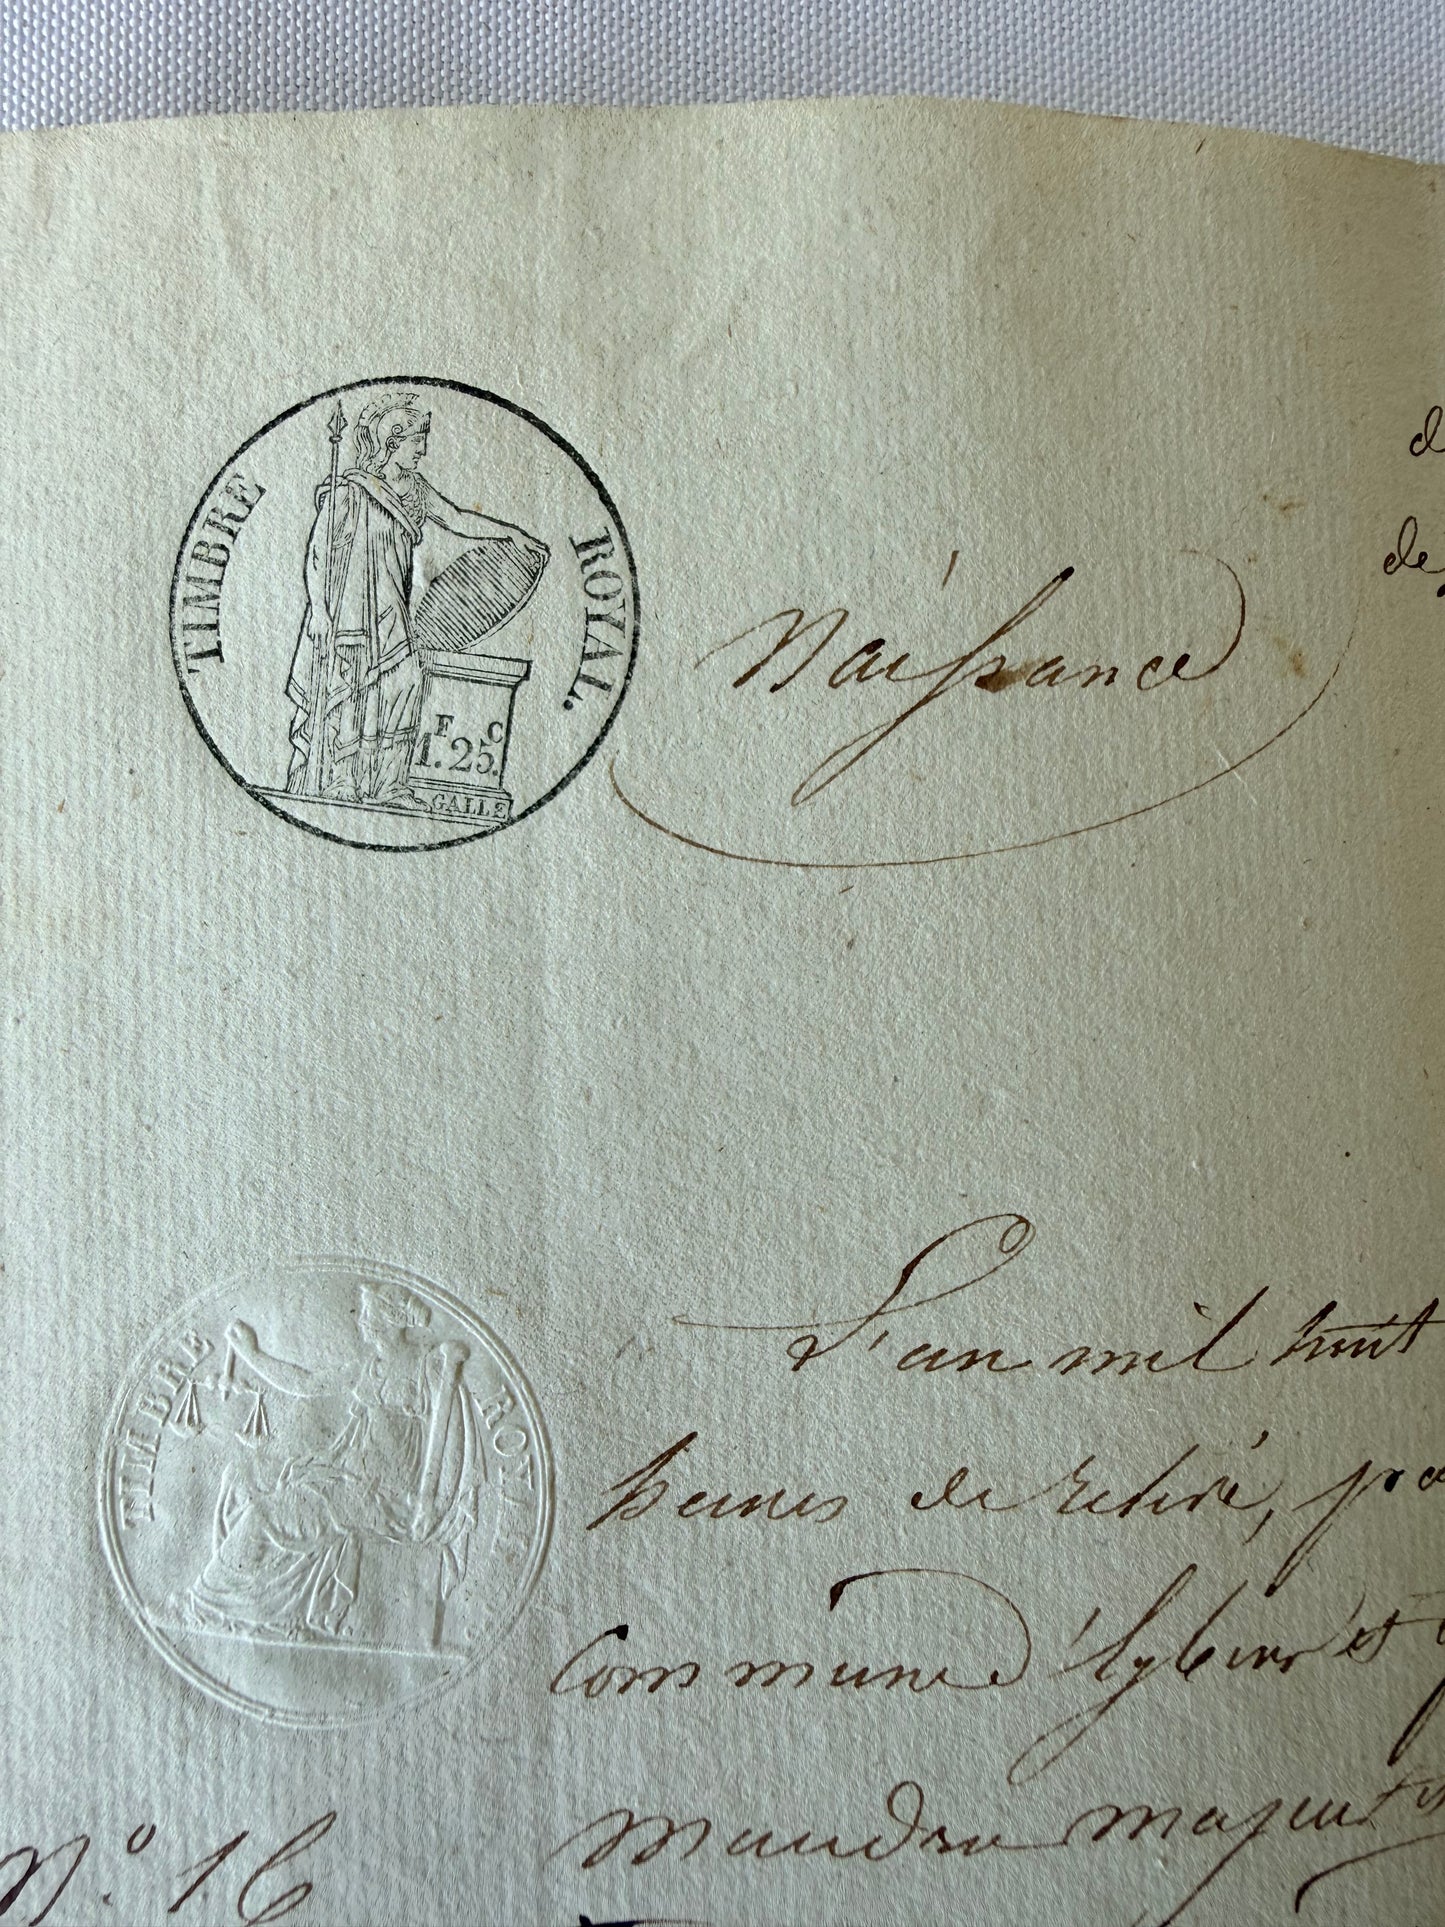 TIMBRE ROYAL.
F C
1.25.
GALLE
de
Naissance
TIMBRE ROYAL
L'an mil huit
heures de relevé, pa
Commune d'
majeur
N.° 16